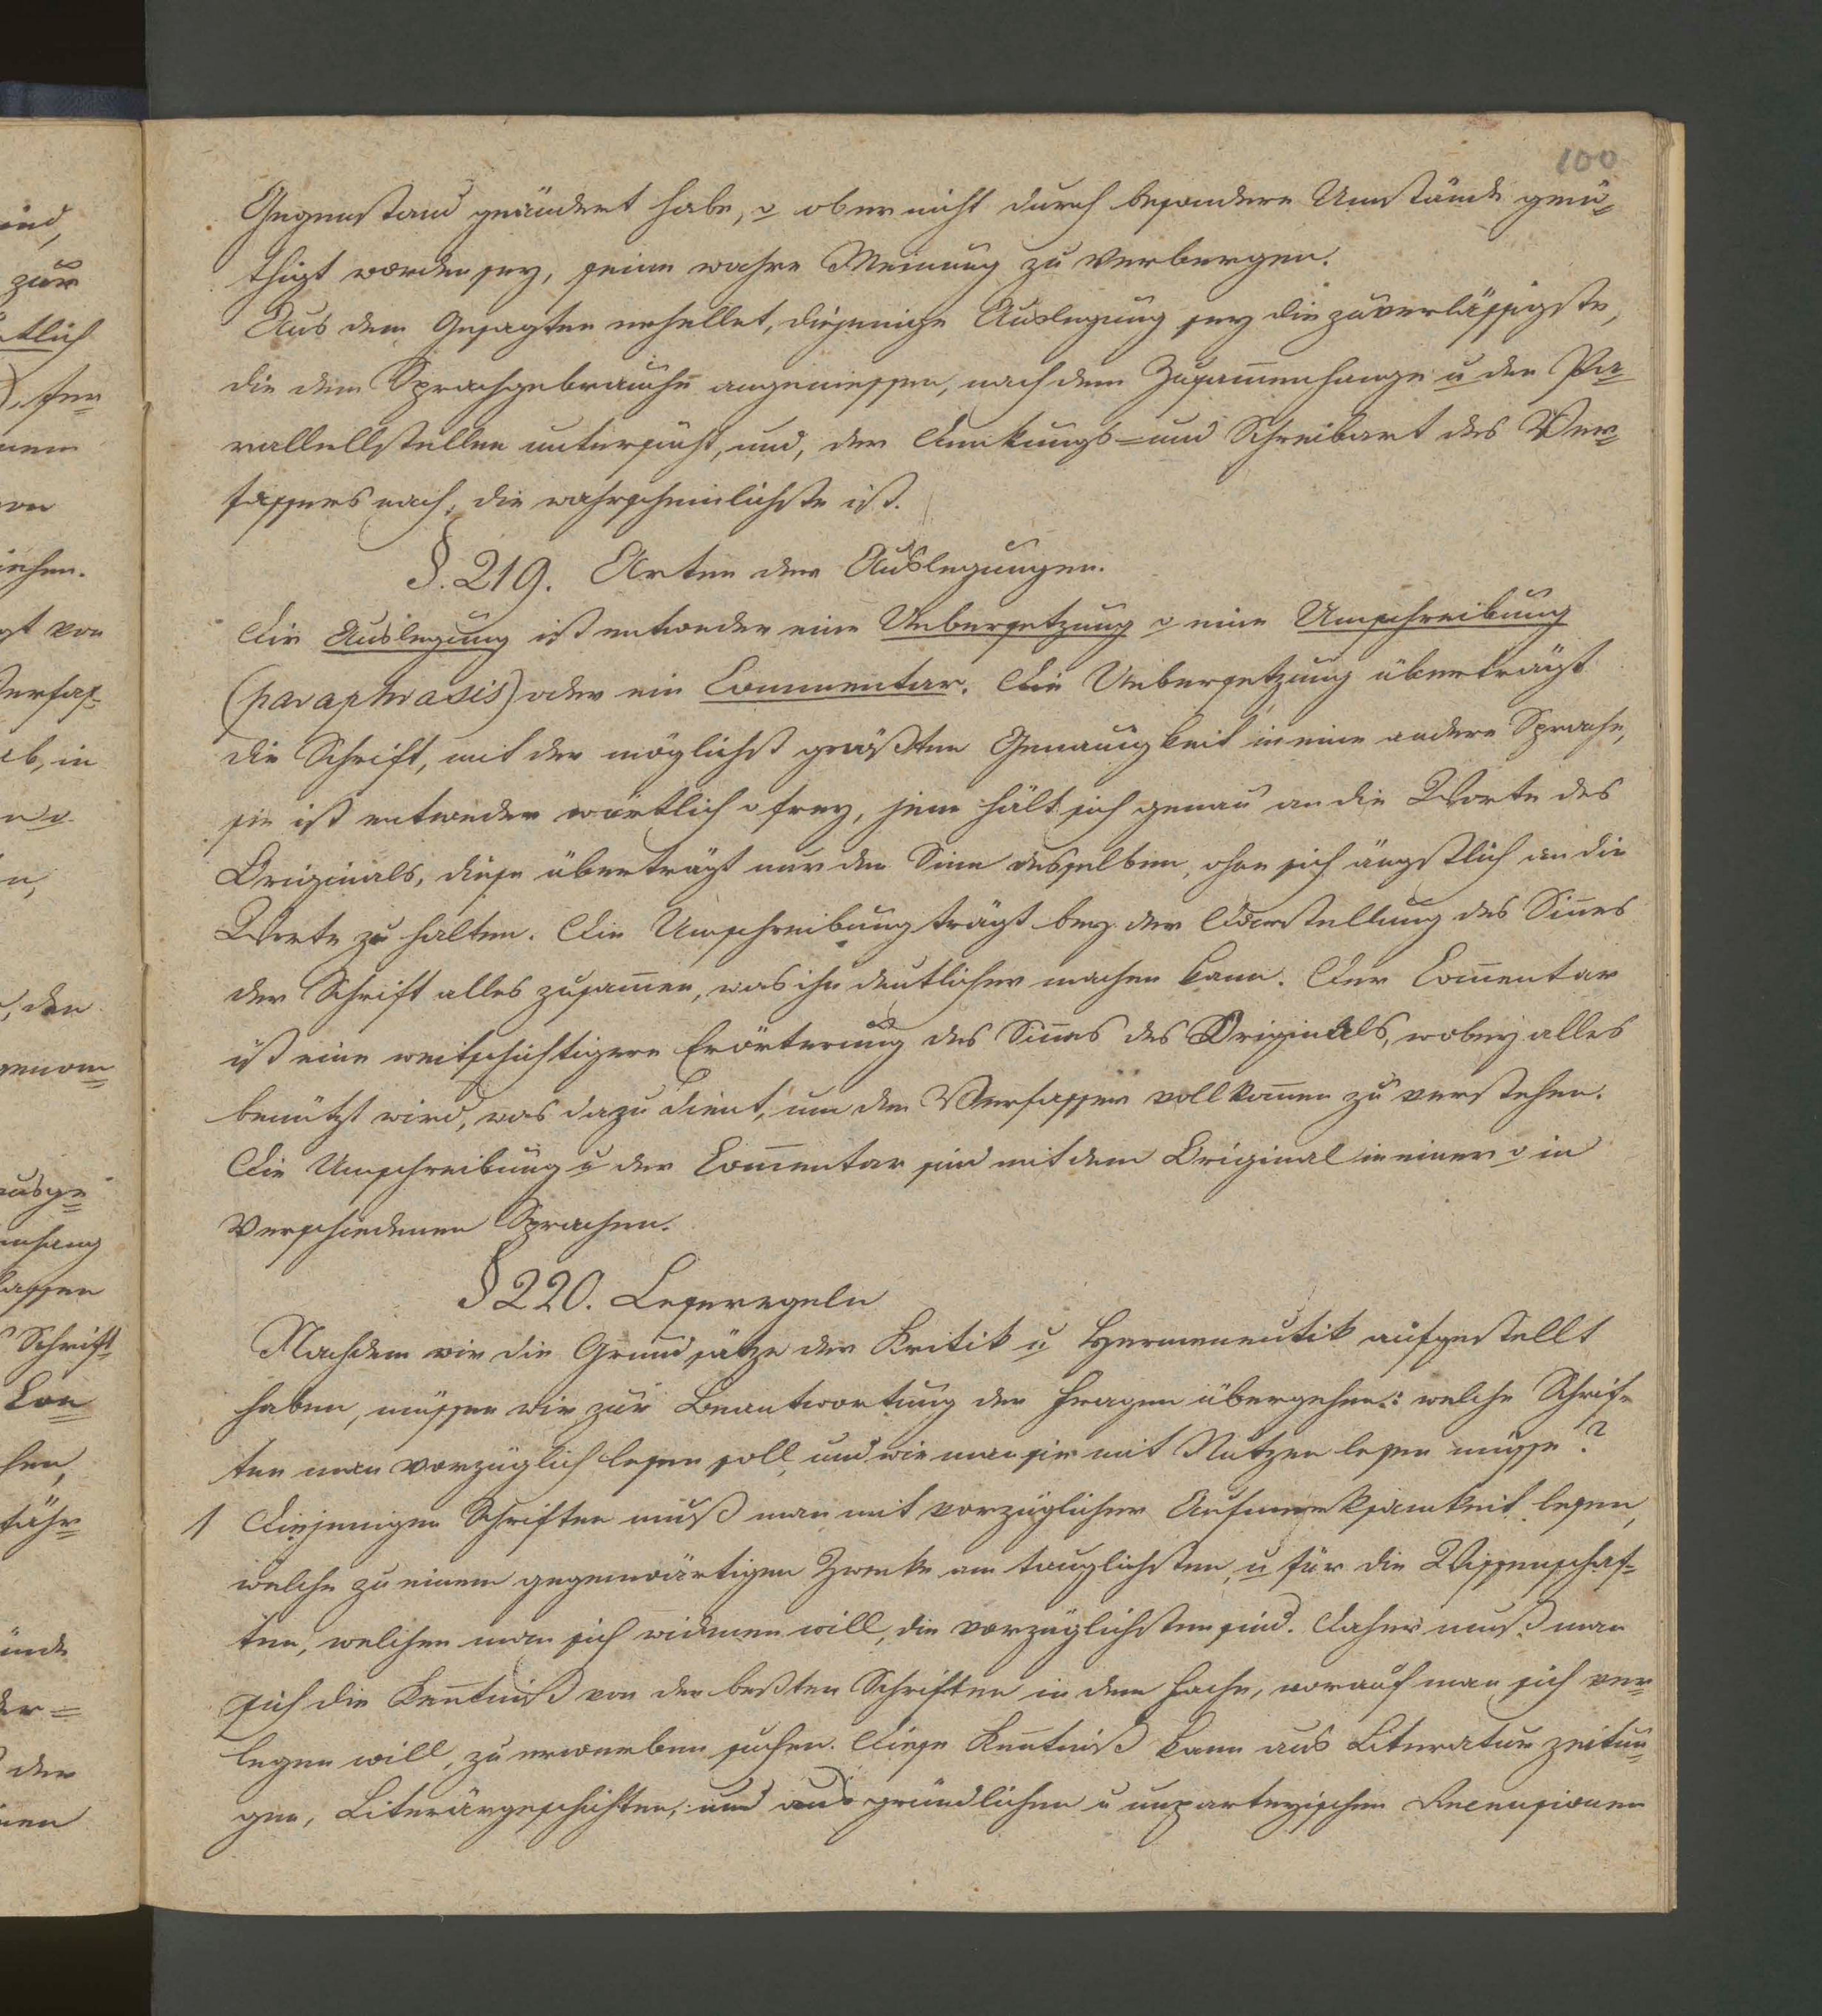 100
Gegenstand geändert habe, o ob er nicht durch besondere Umstände genö-
thigt worden sey, seine wahre Meinung zu verbergen.
Aus dem Gesagten erhellet, diejenige Auslegung sey die zuverlässigste,
die dem Sprachgebrauche angemessen, nach dem Zusam̅enhange u den Pa-
rallellstellen untersucht, und, der Denkungs- und Schreibart des Ver-
fassers nach, die wahrscheinlichste ist.
§. 219. Arten der Auslegungen.
Die Auslegung ist entweder eine Uebersetzung o eine Umschreibung
(paraphrasis) oder ein Commentar. Die Uebersetzung überträgt
die Schrift, mit der möglichst größten Genauigkeit in eine andere Sprache,
sie ist entweder wörtlich o frey, jene hält sich genau an die Worte des
Originals, diese überträgt nur den Sinn desselben, ohne sich ängstlich an die
Worte zu halten. Die Umschreibung trägt bey der Darstellung des Sin̅es
der Schrift alles zusam̅en, was ihn deutlicher machen kann. Der Com̅entar
ist eine weitschichtigere Erörterung des Sin̅es des Originals, wobey alles
benützt wird, was dazu dient, um den Verfasser vollkom̅en zu verstehen.
Die Umschreibung u der Com̅entar sind mit dem Original in einer o in
verschiedenen Sprachen.
§ 220. Leseregeln
Nachdem wir die Grundsätze der Kritik u Hermeneutik aufgestellt
haben, müssen wir zur Beantwortung der Fragen übergehen: welche Schrif-
ten man vorzüglich lesen soll, und wie man sie mit Nutzen lesen müsse?
1 Diejenigen Schriften muß man mit vorzüglicher Aufmerksamkeit lesen,
welche zu einem gegenwärtigen Zwecke am tauglichsten, u für die Wissenschaf-
ten, welchen man sich widmen will, die vorzüglichsten sind. Daher muß man
sich die Ken̅tniß von den beßten Schriften in dem Fache, worauf man sich ver-
legen will, zu erwerben suchen. Diese Ken̅tniß kann aus Literaturzeitun-
gen, Literärgeschichten, und aus gründlichen u unparteyischen Recensionen